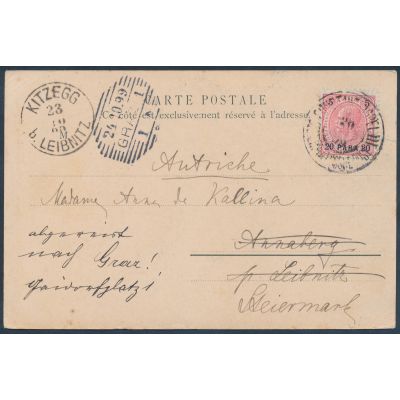 CARTE POSTALE
Ce côté est exclusivement réservé à l'adresse.
KITZEGG
23
10
99
b. LEIBNITZ
24.10.99
GRAZ
1 1
20
20 PARA 20
Autriche
Madame Anna de Kallina
Annaberg
p. Leibnitz
Steiermark
abgereist
nach Graz!